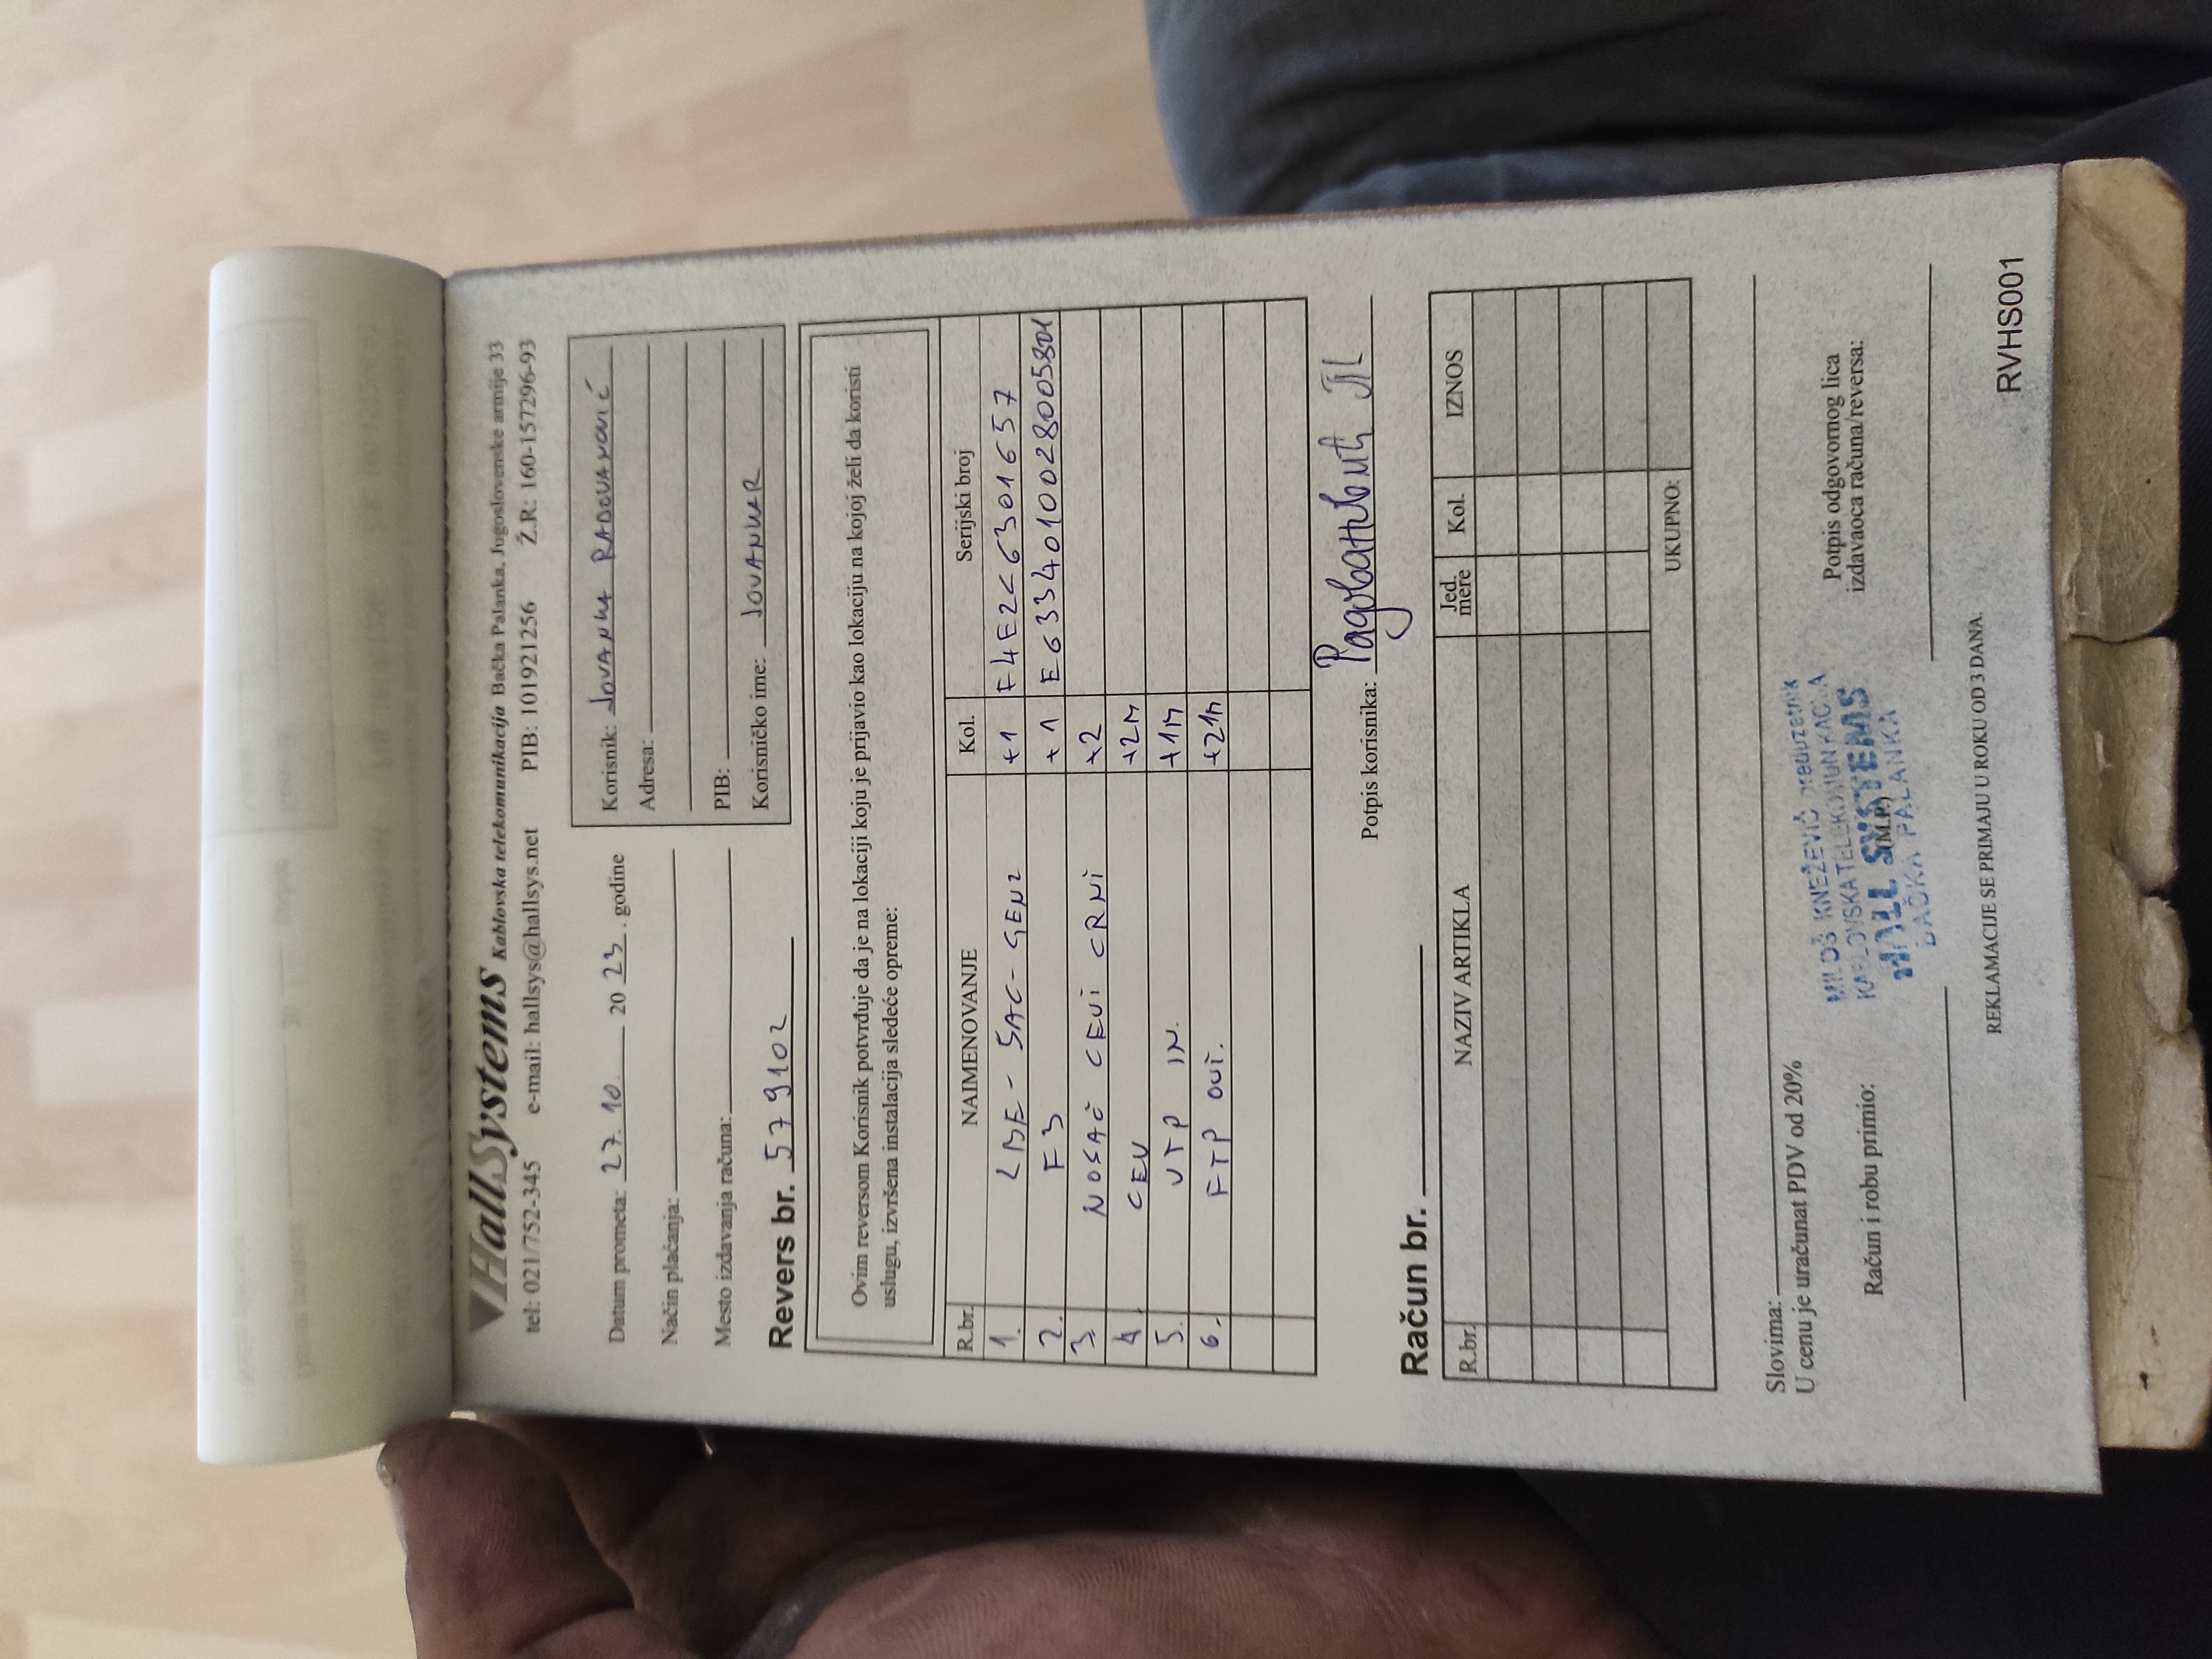 HallSystems Kablovska telekomunikacija Bačka Palanka, Jugoslovenske armije 33
tel: 021/752-345 e-mail: hallsys@hallsys.net PIB: 101921256 Ž.R: 160-157296-93
Datum prometa: 27.10. 2023. godine
Način plaćanja:
Mesto izdavanja računa:
Korisnik: JOVANKA RADOVANOVIĆ
Adresa:
PIB:
Korisničko ime: JOVANKAR
Revers br. 579102
Ovim reversom Korisnik potvrđuje da je na lokaciji koju je prijavio kao lokaciju na kojoj želi da koristi
uslugu, izvršena instalacija sledeće opreme:
R.br. NAIMENOVANJE Kol. Serijski broj
1. LBE-5AC-GEN2 +1 F4E2C6301657
2. F3 +1 E6334010028005801
3. NOSAČ CEVI CRNI +2
4. CEV +2M
5. UTP IN. +1M
6. FTP OUT. +21M
Potpis korisnika:
Račun br.
R.br. NAZIV ARTIKLA Jed. mere Kol. IZNOS
UKUPNO:
Slovima:
U cenu je uračunat PDV od 20%
Račun i robu primio:
(M.P.)
Potpis odgovornog lica
izdavaoca računa/reversa:
MILOŠ KNEŽEVIĆ preduzetnik
KABLOVSKA TELEKOMUNIKACIJA
HALL SYSTEMS
BAČKA PALANKA
REKLAMACIJE SE PRIMAJU U ROKU OD 3 DANA.
RVHS001